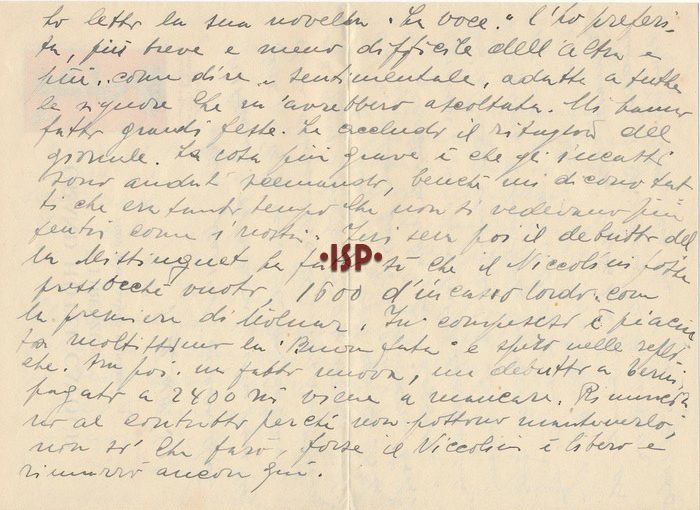 to letto la sua novella "La voce." L'ho preferi-
ta, più breve e meno difficile dell'altra e
più, come dire, sentimentale, adatta a tutte
le signore che m'avrebbero ascoltata. Mi hanno
fatto grandi feste. Le accludo il ritaglio del
giornale. La cosa più grave è che gli incassi
sono andati scemando, benchè mi dicono tut-
ti che era tanto tempo che non si vedevano più
come i nostri. Ieri sera poi il debutto del
la Mistinguet ha fatto sì che il Niccolini fosse
pressochè vuoto, 1600 d'incasso lordo. con
la premiere di Molnar. In compenso è piaciu
ta moltissimo la "Buona fata" e spero nelle repli-
che. Ma poi un fatto nuovo, un debutto a Terni,
pagato a 2400 mi viene a mancare. Rinuncia
no al contratto perchè non possono mantenerlo,
non so che farò, forse il Niccolini è libero e
rimarrò ancora qui.
·ISP·